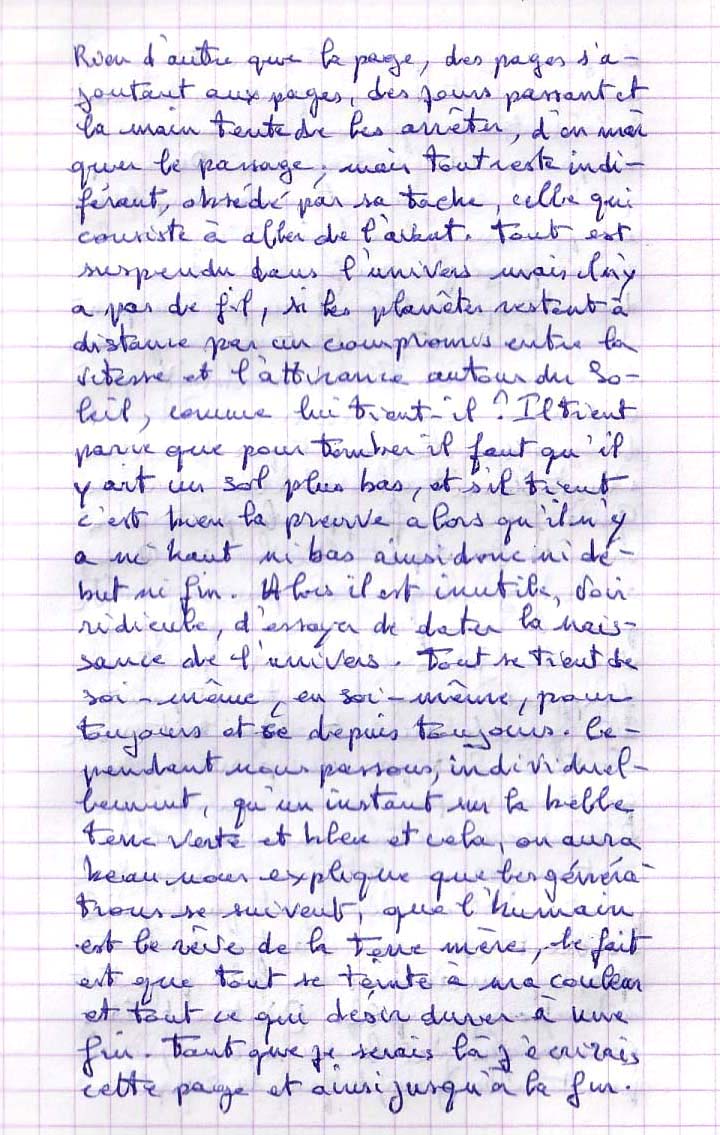 Rien d'autre que la page, des pages s'a-
joutant aux pages, des jours passant et
la main tente de les arrêter, d'en mar
quer le passage, mais tout reste indi-
férant, obsédé par sa tache, celle qui
consiste à aller de l'avant. Tout est
suspendu dans l'univers mais il n'y
a pas de fil, si les planètes restent à
distance par un compromis entre la
vitesse et l'attirance autour du So-
leil, comme lui tient-il ? Il tient
parce que pour tomber il faut qu'il
y ait un sol plus bas, et s'il tient
c'est bien la preuve alors qu'il n'y
a ni haut ni bas ainsi donc ni dé-
but ni fin. Alors il est inutile, voir
ridicule, d'essayer de dater la nais-
sance de l'univers. Tout se tient de
soi-même, en soi-même, pour
toujours et depuis toujours. Ce-
pendant nous passons, individuel-
lement, qu'un instant sur la belle
terre verte et bleu et cela, on aura
beau nous explique que les généra-
tions se suivent, que l'humain
est le rêve de la terre mère, le fait
est que tout se teinte à ma couleur
et tout ce qui désir durer à une
fin. Tant que je serais là j'écrirais
cette page et ainsi jusqu'à la fin.